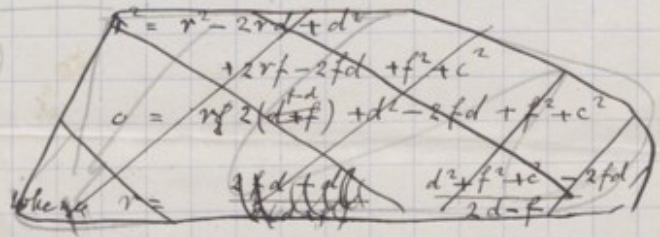 r² = r² - 2rd + d²
+ 2rf - 2fd + f² + c²
0 = r 2(f-d) + d² - 2fd + f² + c²
whence r = d² + f² + c² - 2fd / 2d-f